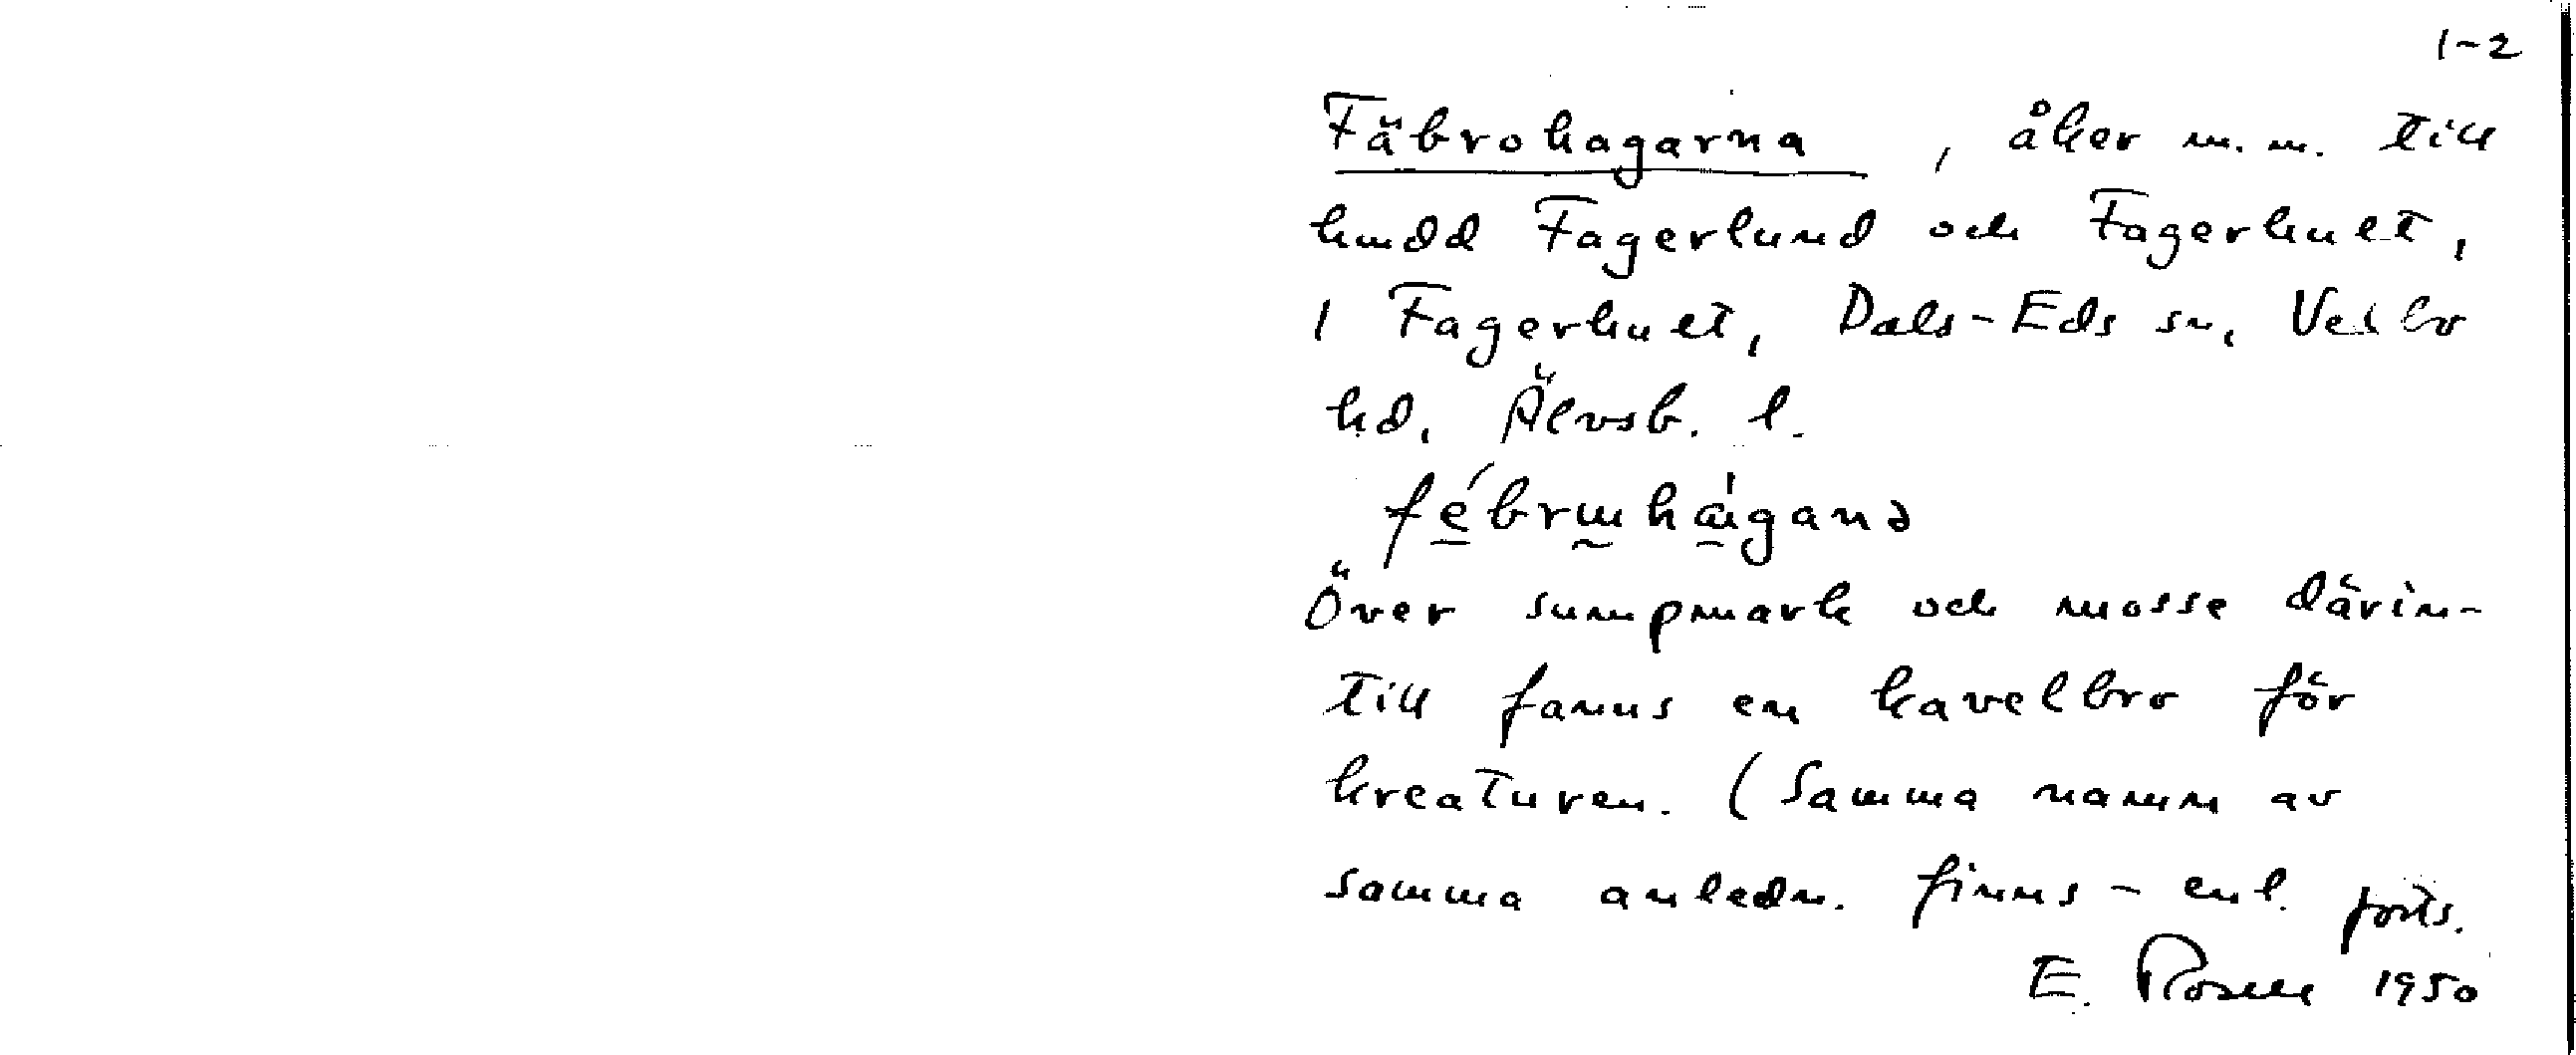 1-2
Fäbrohagarna, åker m.m. till
hmdd Fagerlund och Fagerhult,
1 Fagerhult, Dals-Eds sn, Vedbo
hd, Älvsb. l.
Över sumpmark och mosse därin-
till fanns en kavelbro för
kreaturen. (Samma namn av
samma anledn. finns - enl. forts.
E. Rosell 1950